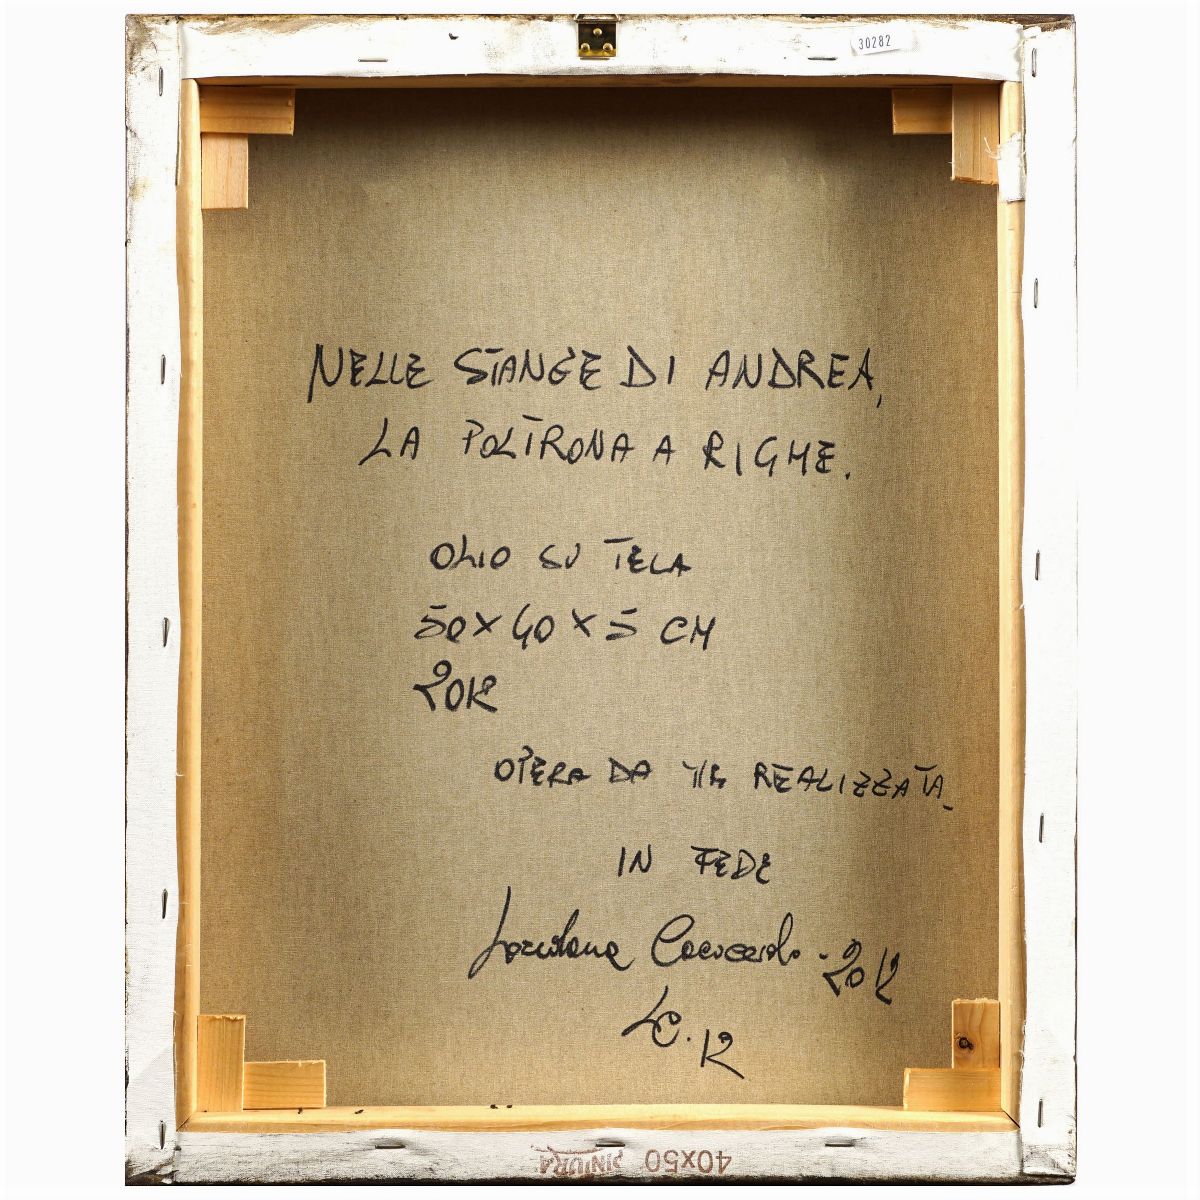 30282
NELLE STANZE DI ANDREA,
LA POLTRONA A RIGHE.
OLIO SU TELA
50 x 40 x 5 CM
2012
OPERA DA ME REALIZZATA.
IN FEDE
Loredana 2012
LC. 12
40x50 PINTURA